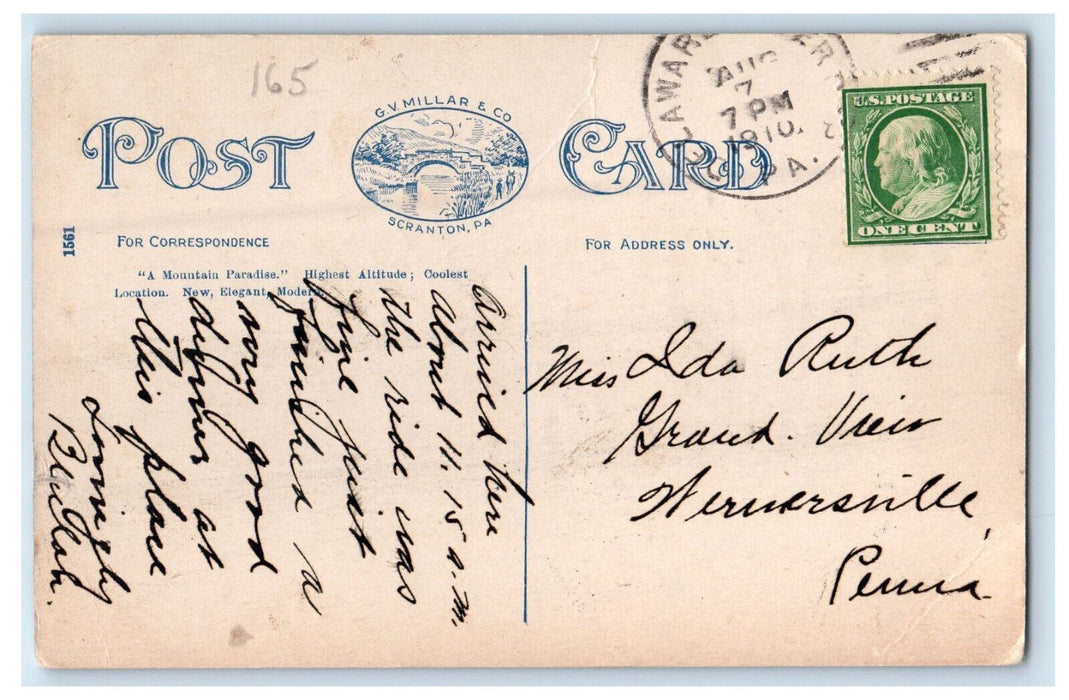 165
POST CARD
G.V. MILLAR & CO
SCRANTON, PA
AUG
7
7 PM
1910.
PA.
U.S. POSTAGE
ONE CENT
1561
FOR CORRESPONDENCE
FOR ADDRESS ONLY.
"A Mountain Paradise." Highest Altitude; Coolest
Location. New, Elegant, Modern.
Arrived here
about 11.15 a.m.
the ride was
fine just
finished a
very good
dinner at
this place
Lovingly
Beulah.
Miss Ida Ruth
Grand. View
Wernersville,
Penna.